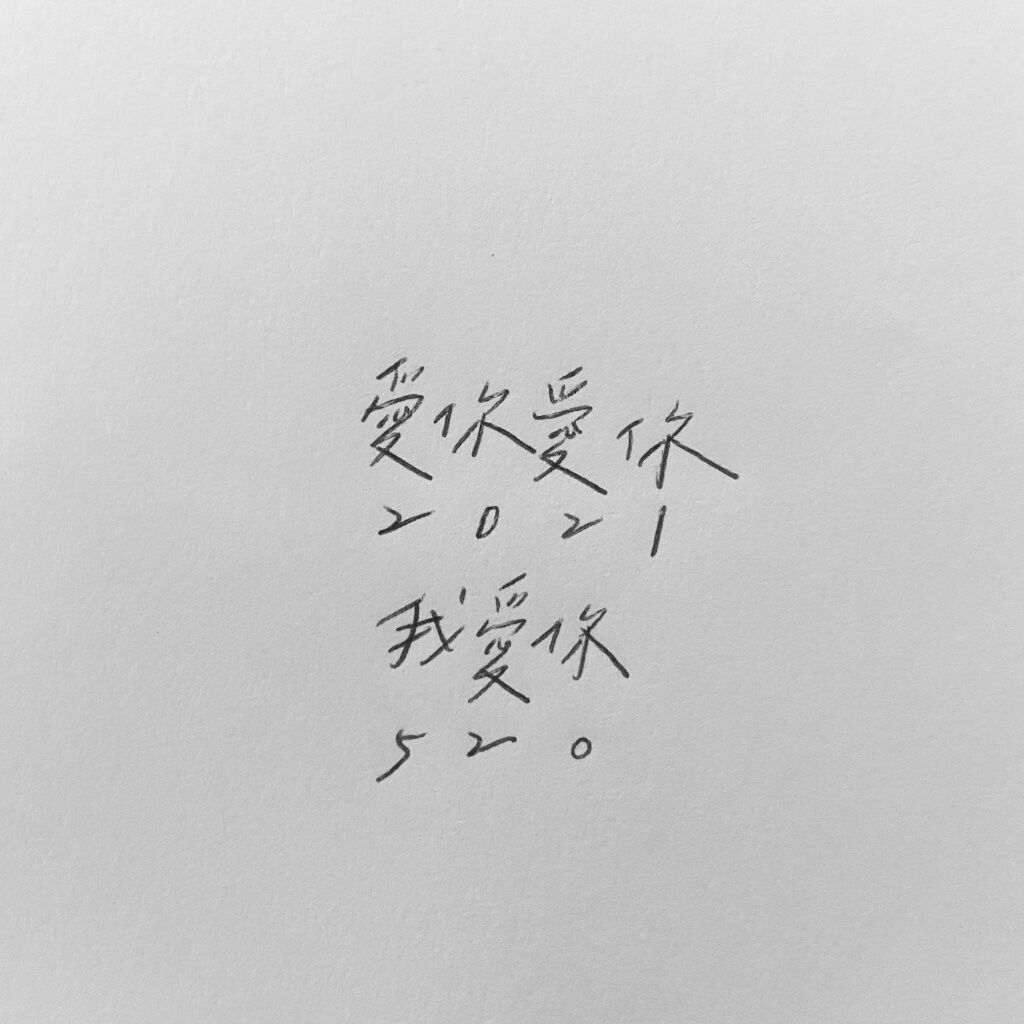 愛你愛你
2021
我愛你
520